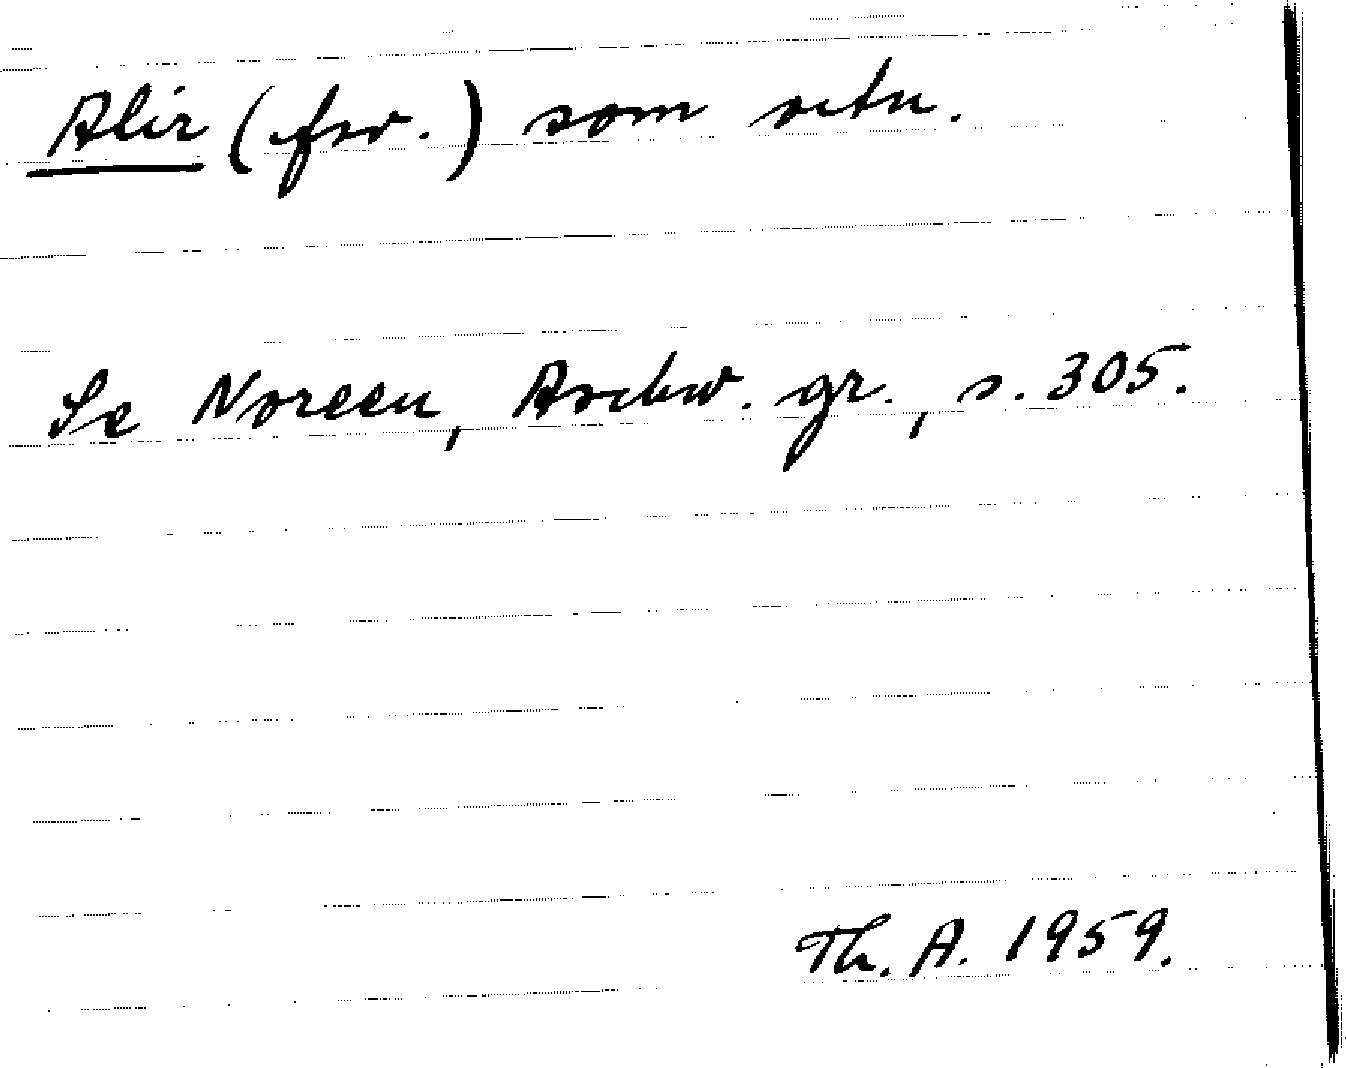 Alir (fsv.) som ortn.
Se Noreen, Aschw. gr., s. 305.
Th. A. 1959.